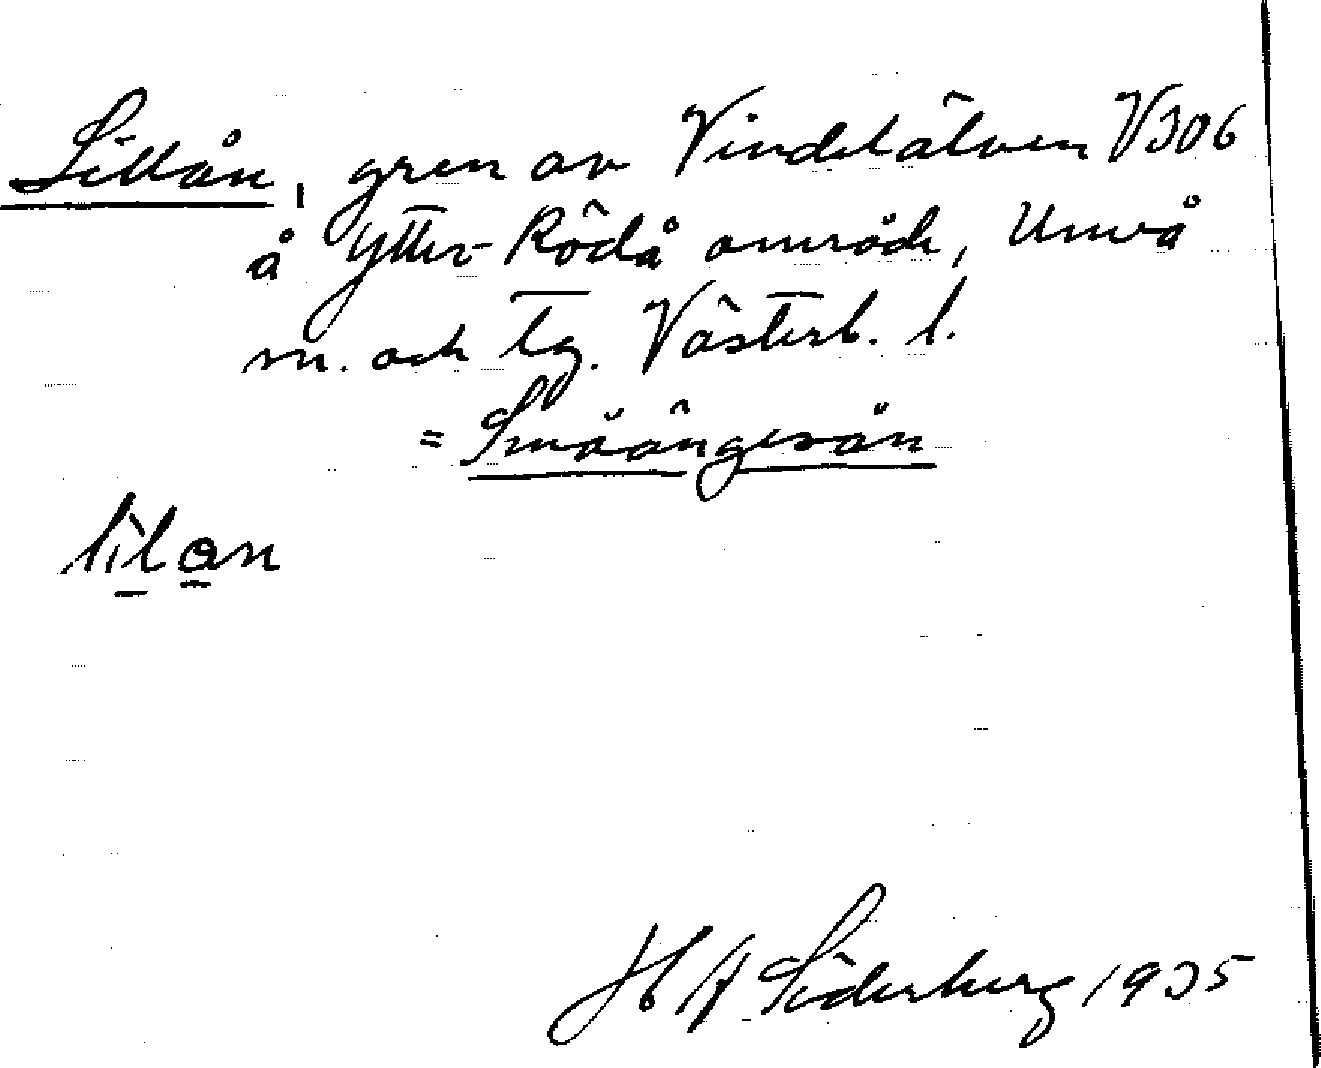 Lillån, gren av Vindelälven V306
å Ytter-Rödå område, Umeå
sn. och tg. Västerb. l.
= Småängesån
lìlan
H A Söderberg 1935